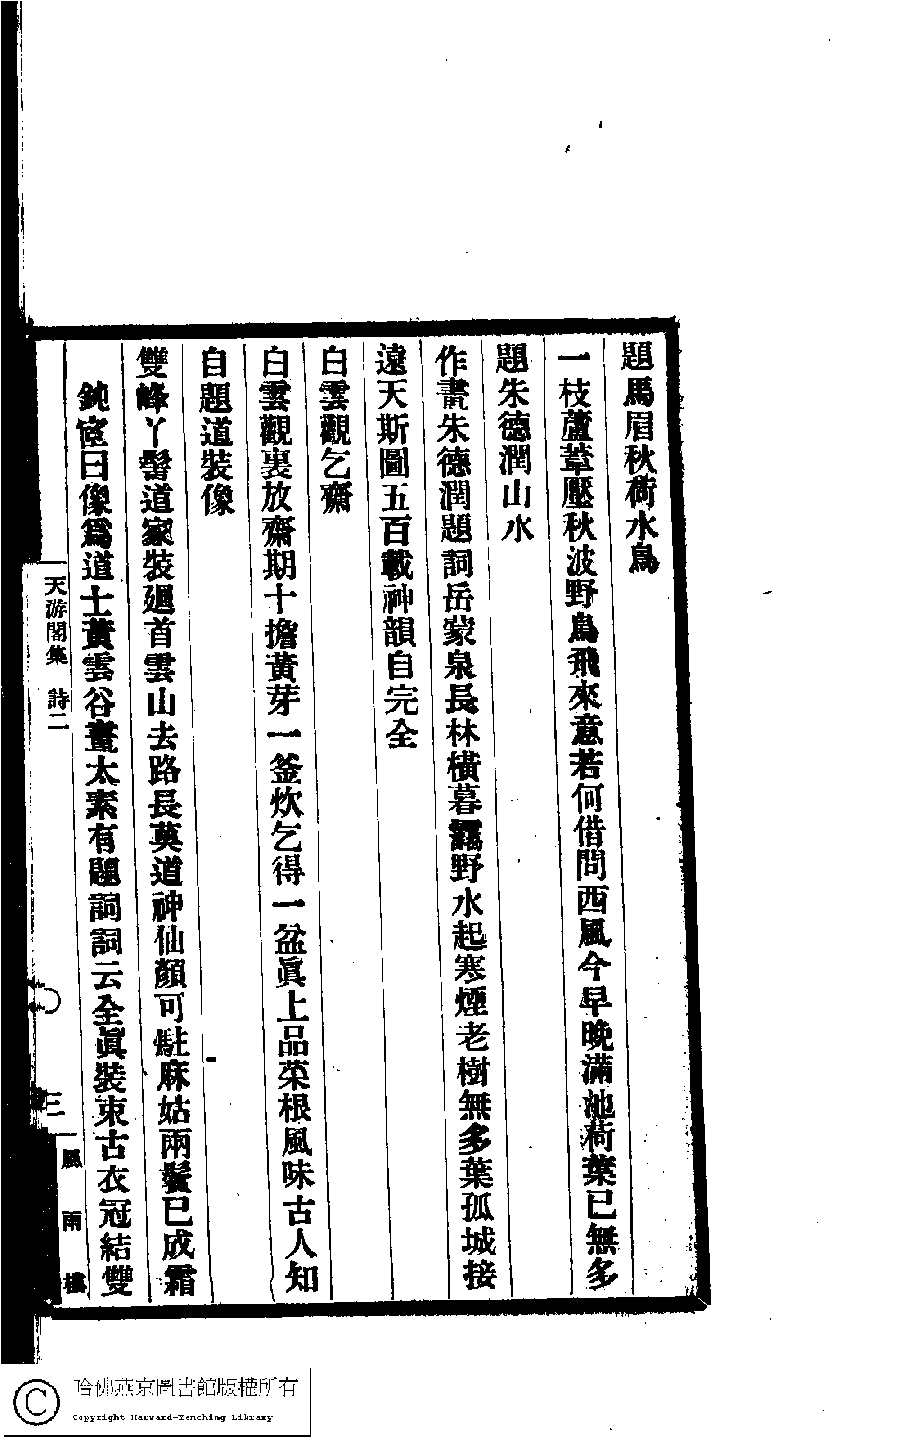 題馬眉秋荷水鳥
一枝蘆葦壓秋波野鳥飛來意若何借問西風今早晚滿池荷葉已無多
題朱德潤山水
作書朱德潤題詞岳蒙泉長林橫暮靄野水起寒煙老樹無多葉孤城接
遠天斯圖五百載神韻自完全
白雲觀乞齋
白雲觀裏放齋期十擔黃芽一釜炊乞得一盆眞上品菜根風味古人知
自題道裝像
雙峰丫髻道家裝廻首雲山去路長莫道神仙顏可駐麻姑兩鬢已成霜
鈍宧曰像爲道士黃雲谷畫太素有題詞詞云全眞裝束古衣冠結雙
天游閣集 詩二
三
風雨樓
哈佛燕京圖書館版權所有
Copyright Harvard-Yenching Library